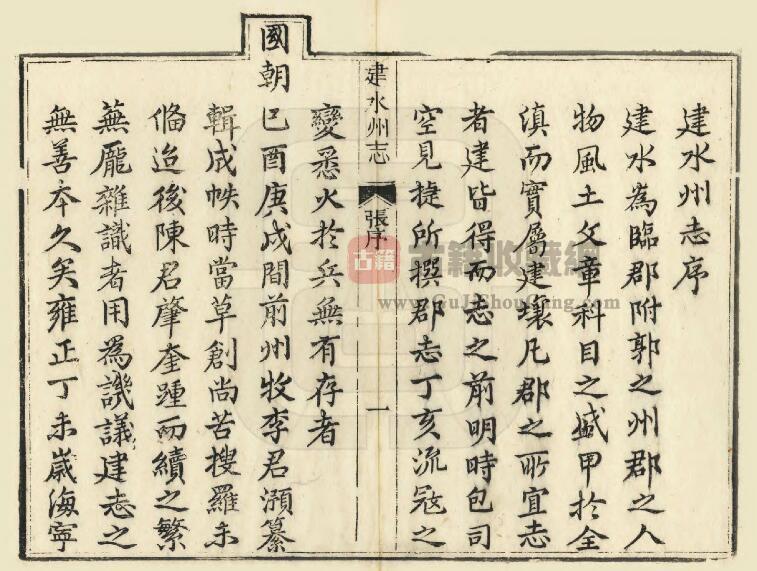 建水州志序
建水為臨郡附郭之州郡之人
物風土文章科目之盛甲於全
滇而實屬建壤凡郡之所宜志
者建皆得而志之前明時包司
空見捷所撰郡志丁亥流寇之
建水州志
張序
一
變悉火於兵無有存者
國朝己酉庚戌間前州牧李君澦纂
輯成帙時當草創尚苦搜羅未
偹迨後陳君肇奎踵而續之繁
蕪龎雜識者用為譏議建志之
無善本久矣雍正丁未歲海寧
古籍
古籍收藏網
www.GuJiShouCang.com